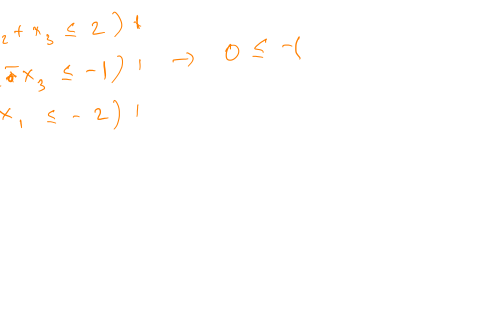 ₂ + x₃ ≤ 2) 1
- x₃ ≤ -1) 1 → 0 ≤ -1
x₁ ≤ - 2) 1